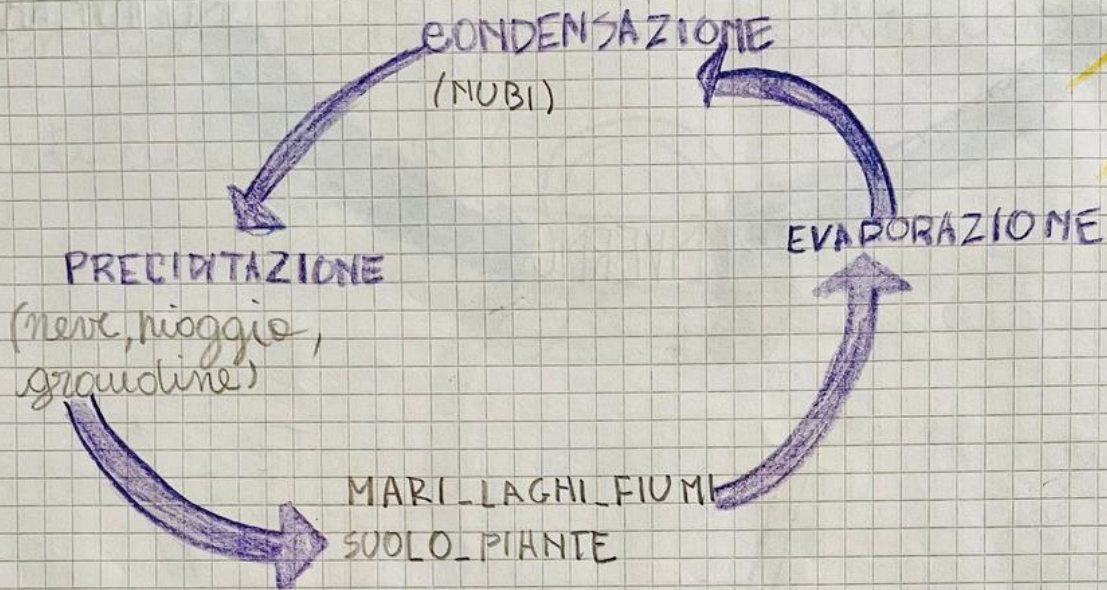 CONDENSAZIONE
(NUBI)
EVAPORAZIONE
PRECIPITAZIONE
(neve, pioggia,
grandine)
MARI_LAGHI_FIUMI
SUOLO_PIANTE